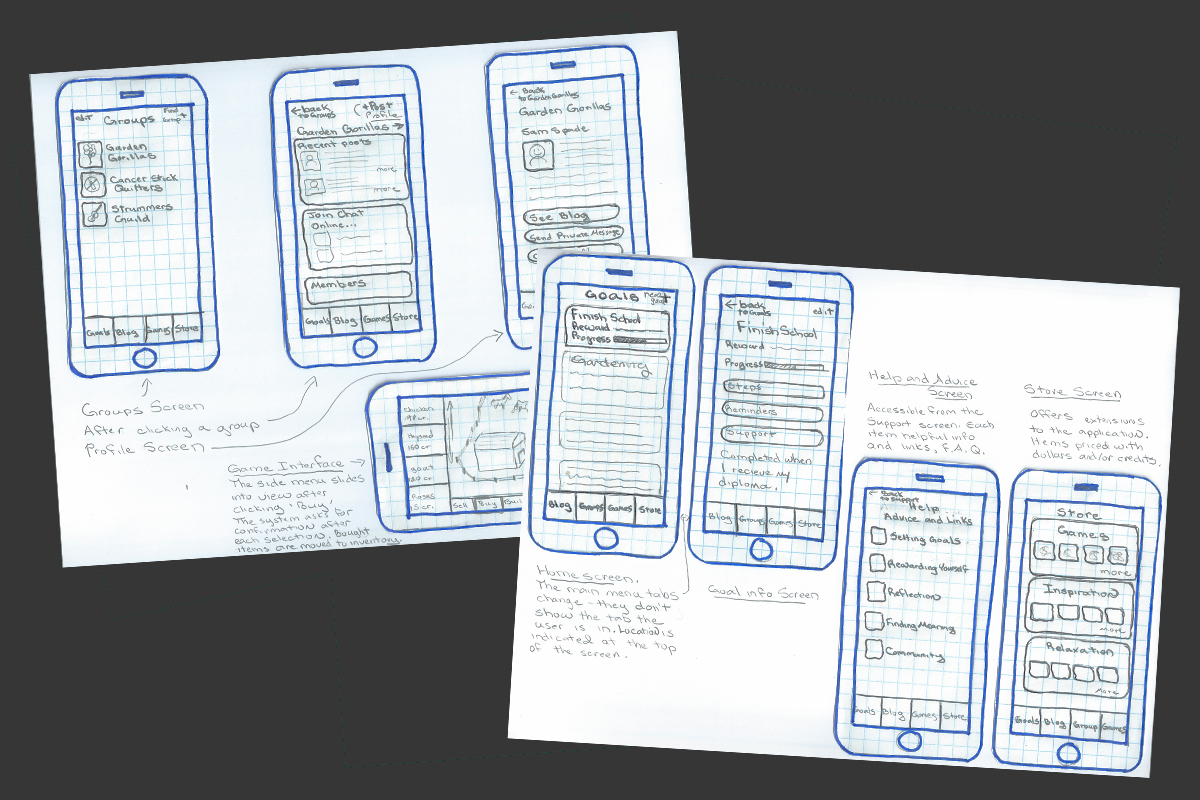 edit
Groups
Find
Group
+
Garden
Gorillas
Cancer Stick
Quitters
Strummers
Guild
Goals Blog Games Store
← back
to Groups
+ Post
Profile
Garden Gorillas →
Recent posts
more
more
Join Chat
Online...
Members
Goals Blog Games Store
← Back
to Garden Gorillas
Garden Gorillas
Sam Spade
See Blog
Send Private Message
Groups Screen
After clicking a group
Profile Screen
Game Interface →
The side menu slides
into view after
clicking "Buy."
The system asks for
confirmation after
each selection. Bought
items are moved to inventory.
chicken
goat
Roses
15 cr.
Sell Buy
GOALS
new
goal
+
Finish School
Reward
Progress
Gardening
Blog Groups Games Store
Home screen.
The main menu tabs
change - they don't
show the tab the
user is in. Location is
indicated at the top
of the screen.
← back
to Goals
edit
Finish School
Reward
Progress
Steps
Reminders
Support
Completed when
I recieve my
diploma.
Blog Groups Games Store
Goal info Screen
Help and Advice
Screen
Accessible from the
Support screen. Each
item helpful info
and links, F.A.Q.
← Back
to Support
Help
Advice and Links
Setting Goals
Rewarding Yourself
Reflection
Finding Meaning
Community
Goals Blog Games Store
Store Screen
Offers extensions
to the application.
Items priced with
dollars and/or credits.
Store
Games
more
Inspiration
More
Relaxation
More
Goals Blog Group Games